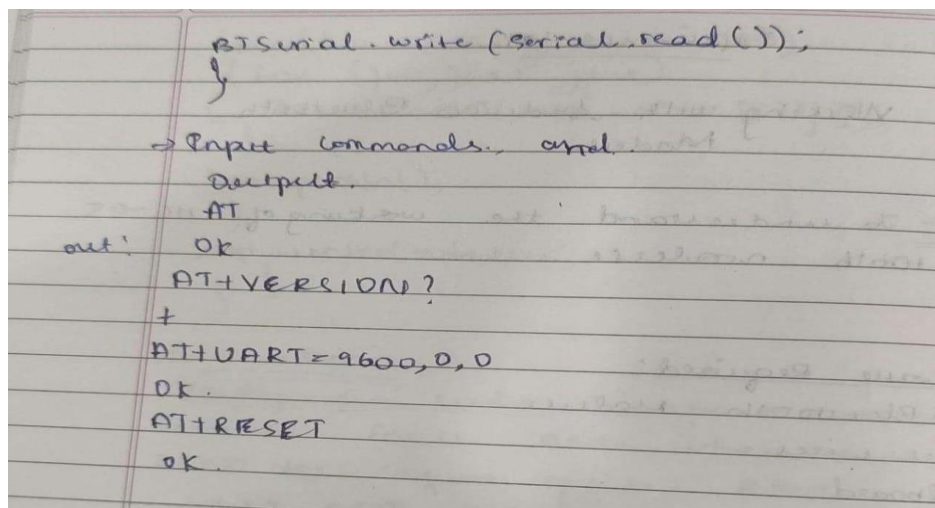 BTSerial.write (Serial.read());
}
→ Input commands, and
Output.
AT
out: OK
AT+VERSION?
+
AT+UART=9600,0,0
OK.
AT+RESET
OK.